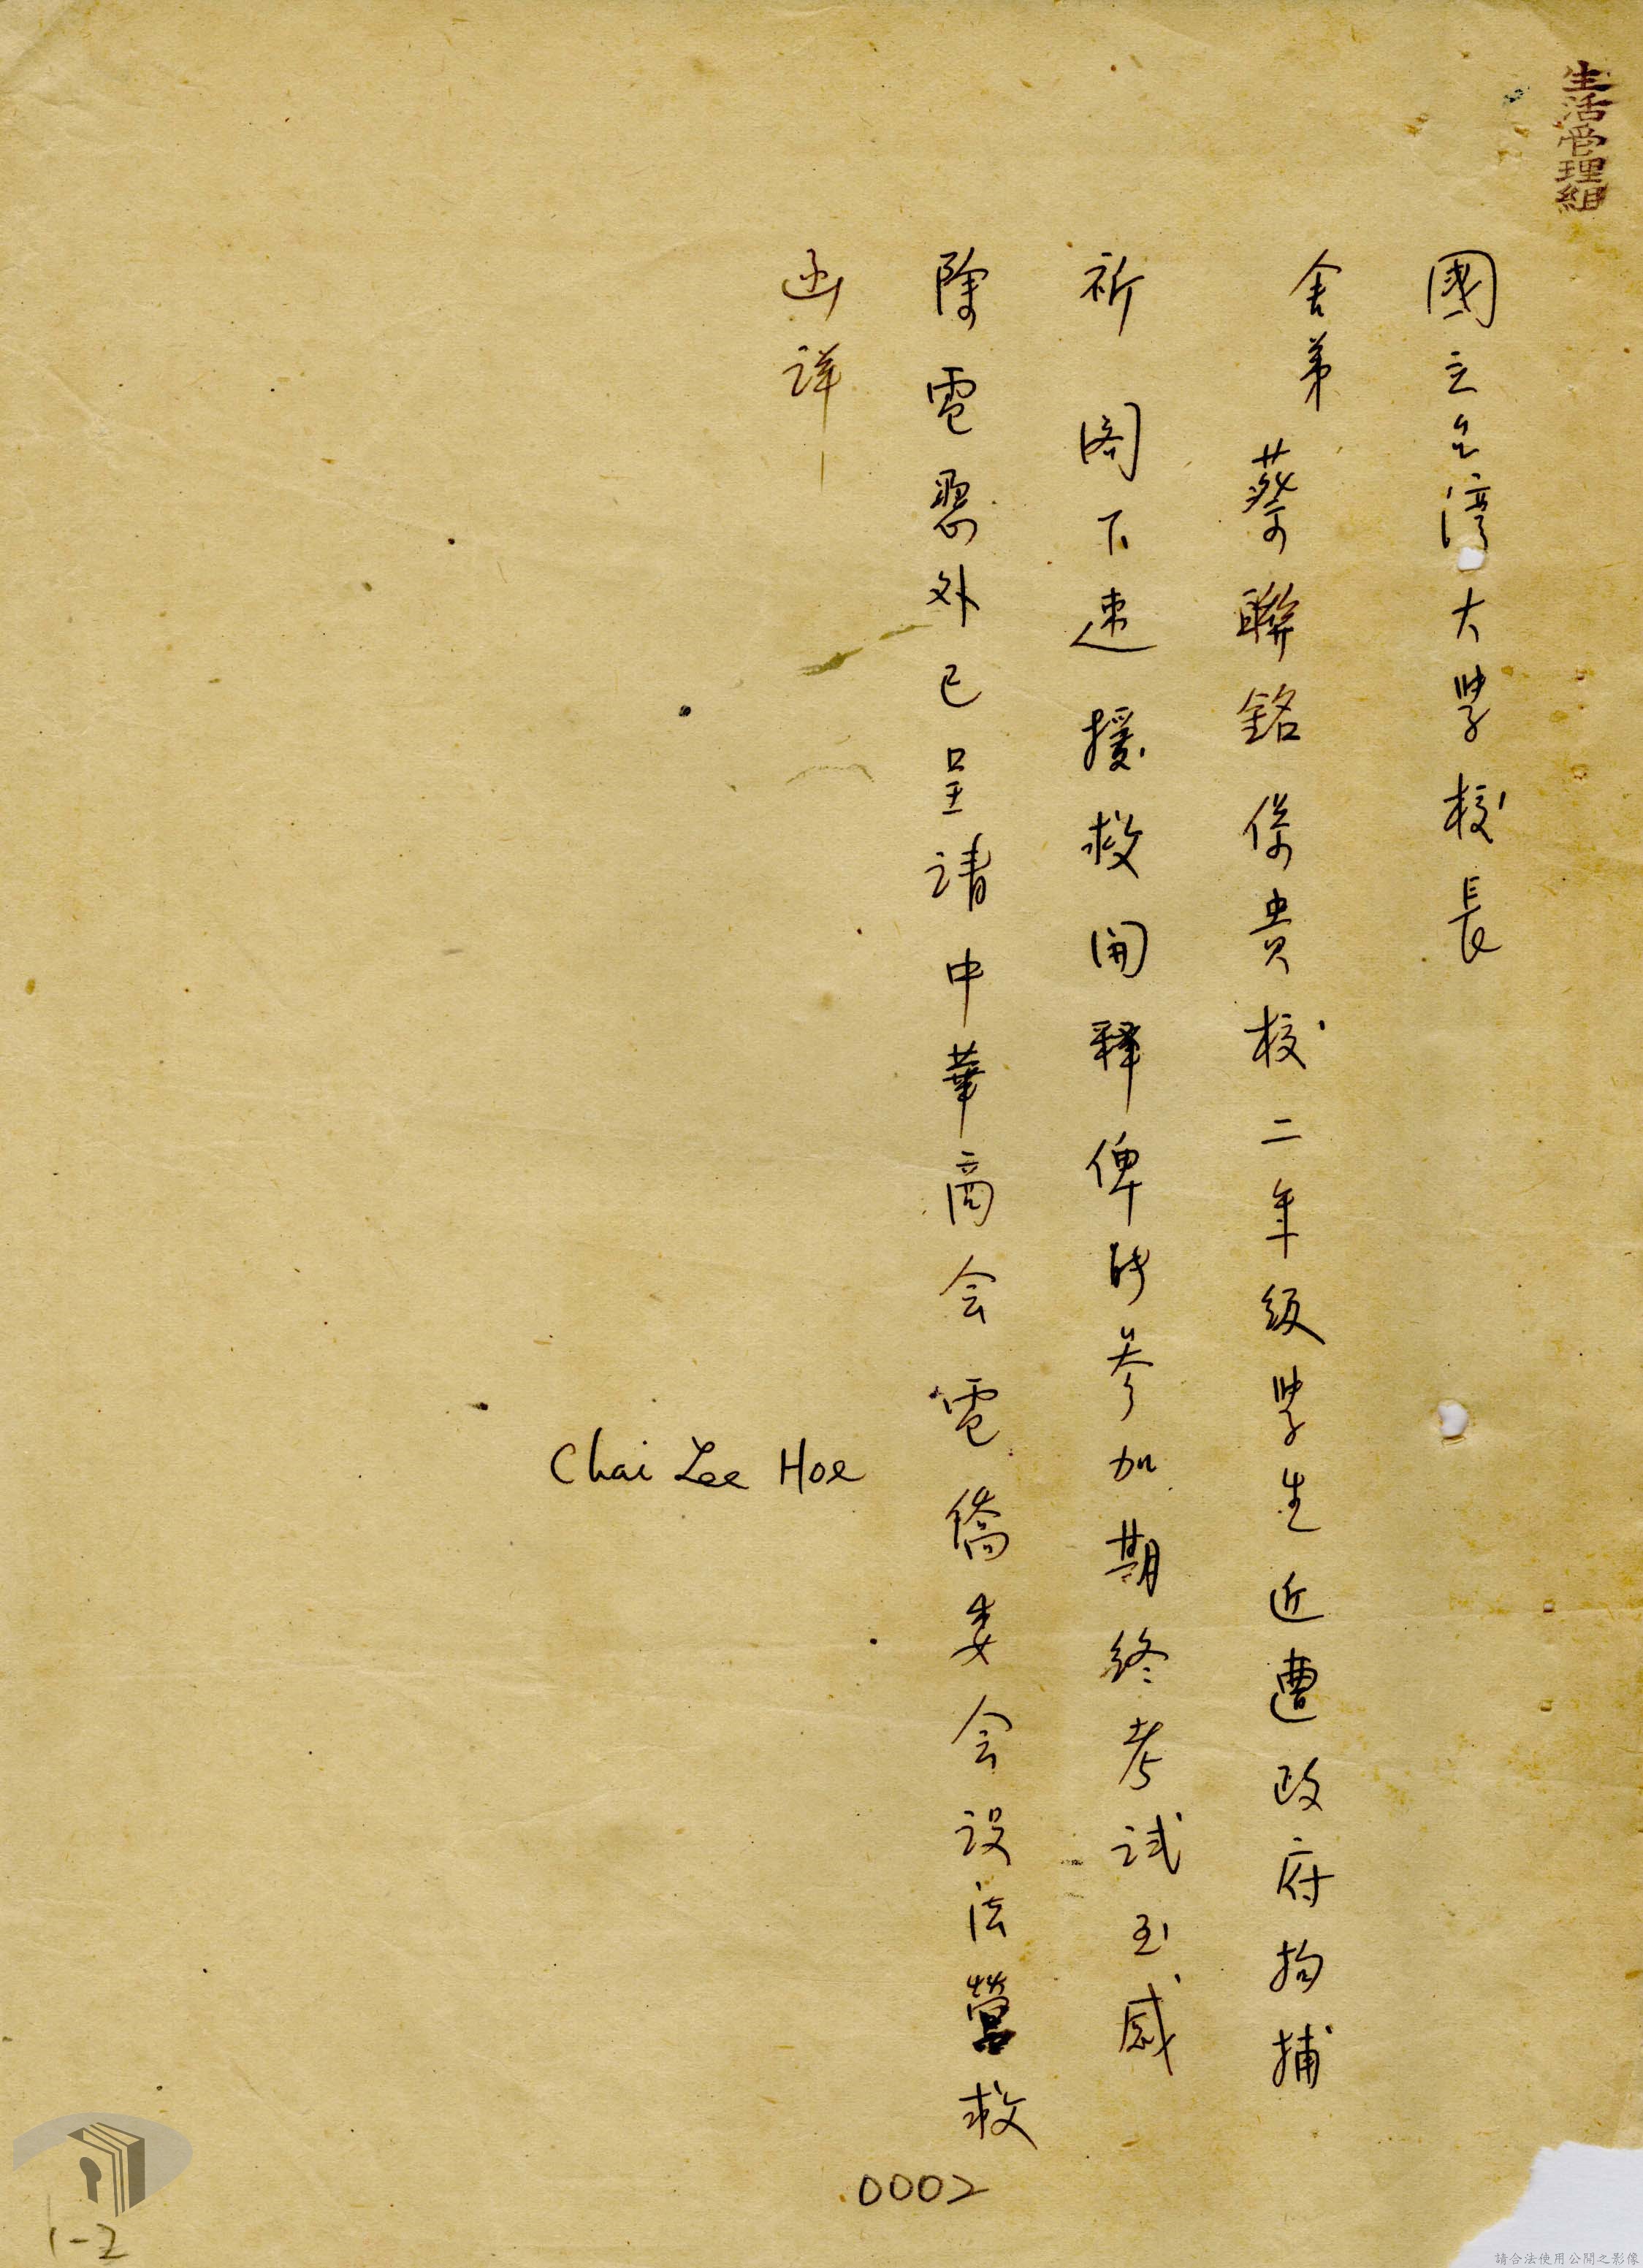 生活管理組
國立台湾大學校長
舍弟蔡聯銘係貴校二年級學生近遭政府拘捕
祈 閣下速援救開释俾時参加期終考試至感
除電懇外已呈請中華商会電僑委会设法營救
函详
Chai Lee Hoe
0002
1-2
請合法使用公開之影像